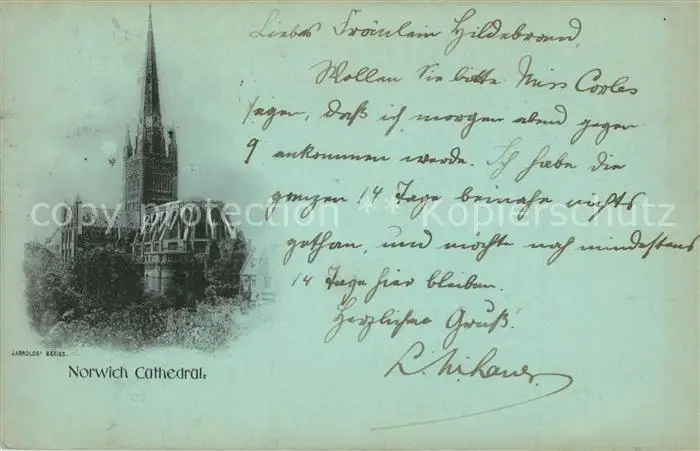 Liebes Fräulein Hildebrand,
Wollen Sie bitte Miss Coples
sagen, daß ich morgen abend gegen
9 ankommen werde. Ich habe die
ganzen 14 Tage beinahe nichts
gethan, und möchte noch mindestens
14 Tage hier bleiben.
Herzlichen Gruß.
L.
copy protection * * Kopierschutz
JARROLDS' SERIES.
Norwich Cathedral.